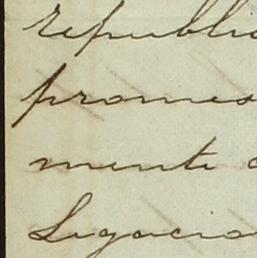 republi
promes
mente
Legacio